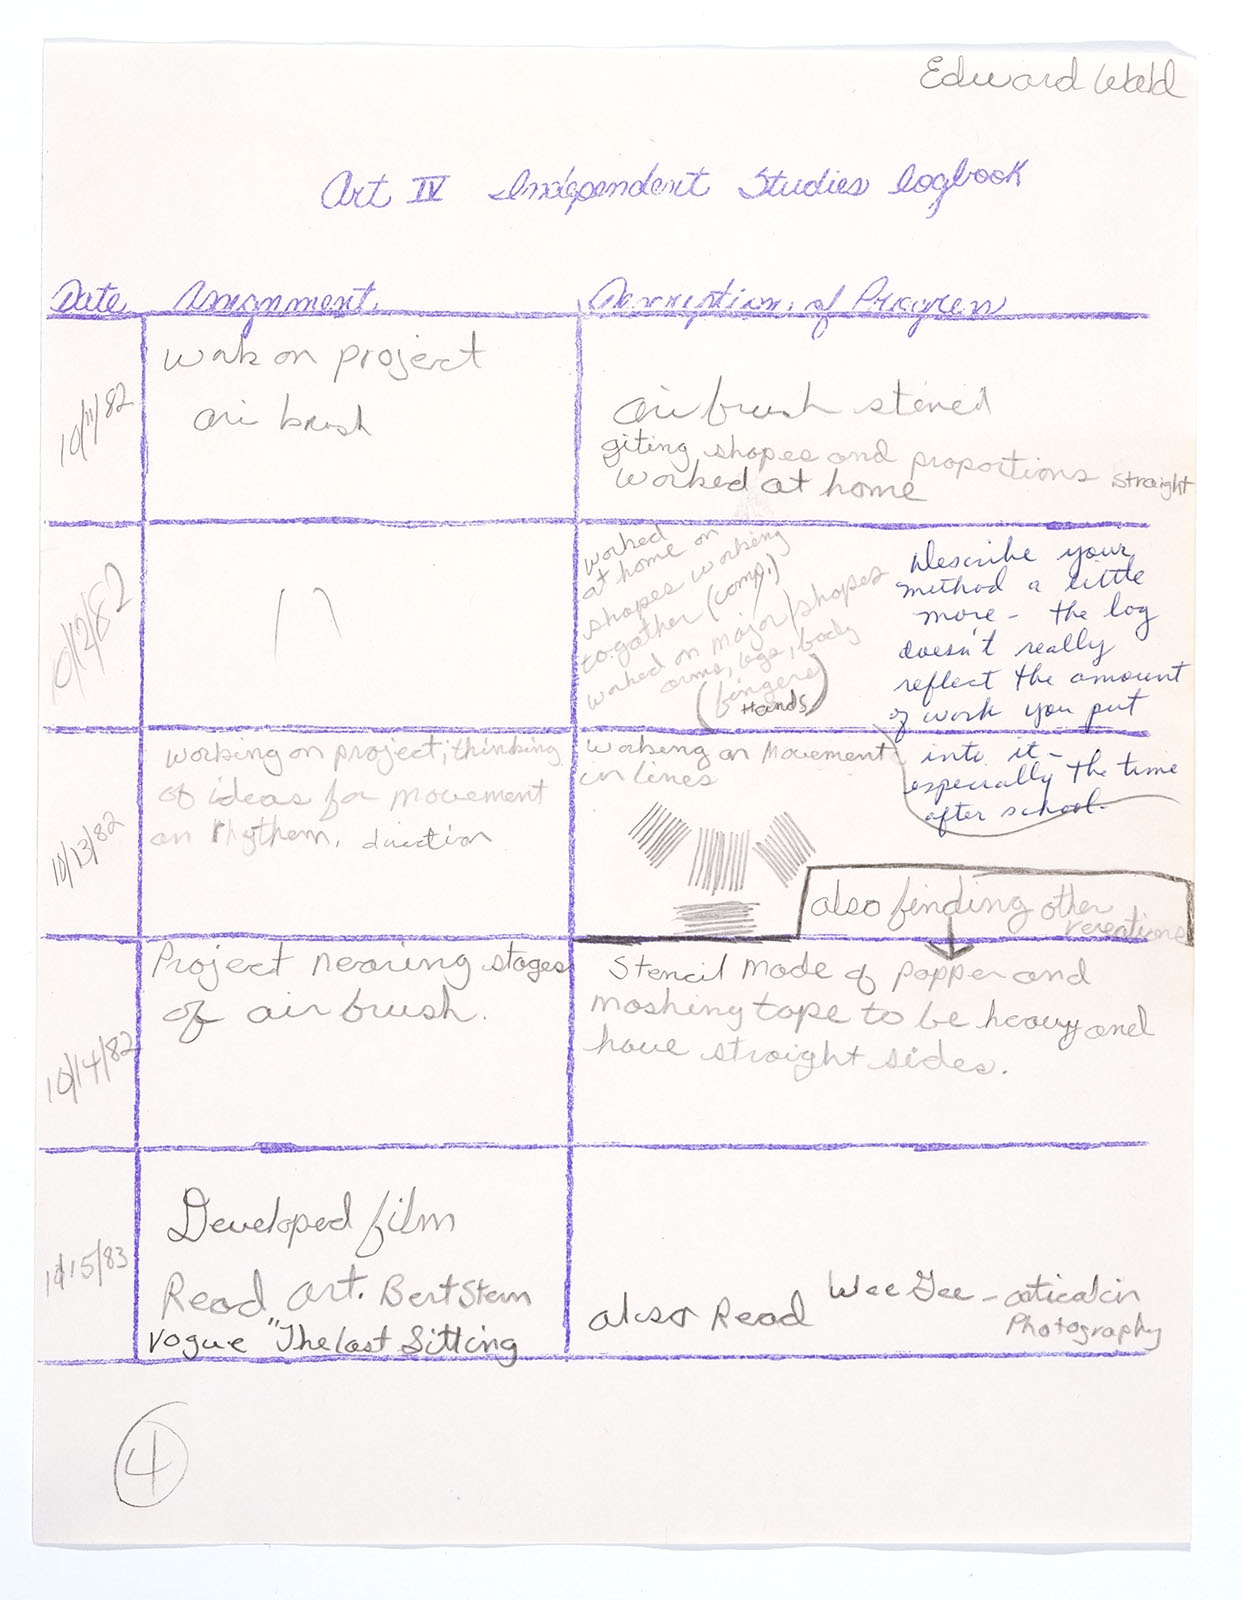 Edward Wald
Art IV Independent Studies Logbook
Date Assignment Description of Progress
10/11/82
work on project
air brush
air brush stencil
giting shapes and proportions straight
worked at home
10/12/82
worked
at home on
shapes working
togather (comp.)
worked on major shapes
arms, legs, body
(fingers)
Hands
Describe your
method a little
more - the log
doesn't really
reflect the amount
of work you put
into it -
especially the time
after school.
10/13/82
working on project; thinking
of ideas for movement
on rhythem, direction
working on Movement
in lines
also finding other
10/14/82
Project nearing stages
of air brush.
Stencil made of papper and
masking tape to be heavy and
have straight sides.
10/15/83
Developed film
Read art. Bert Stern
Vogue "The last Sitting
also Read Wee Gee - artical in
Photography
4